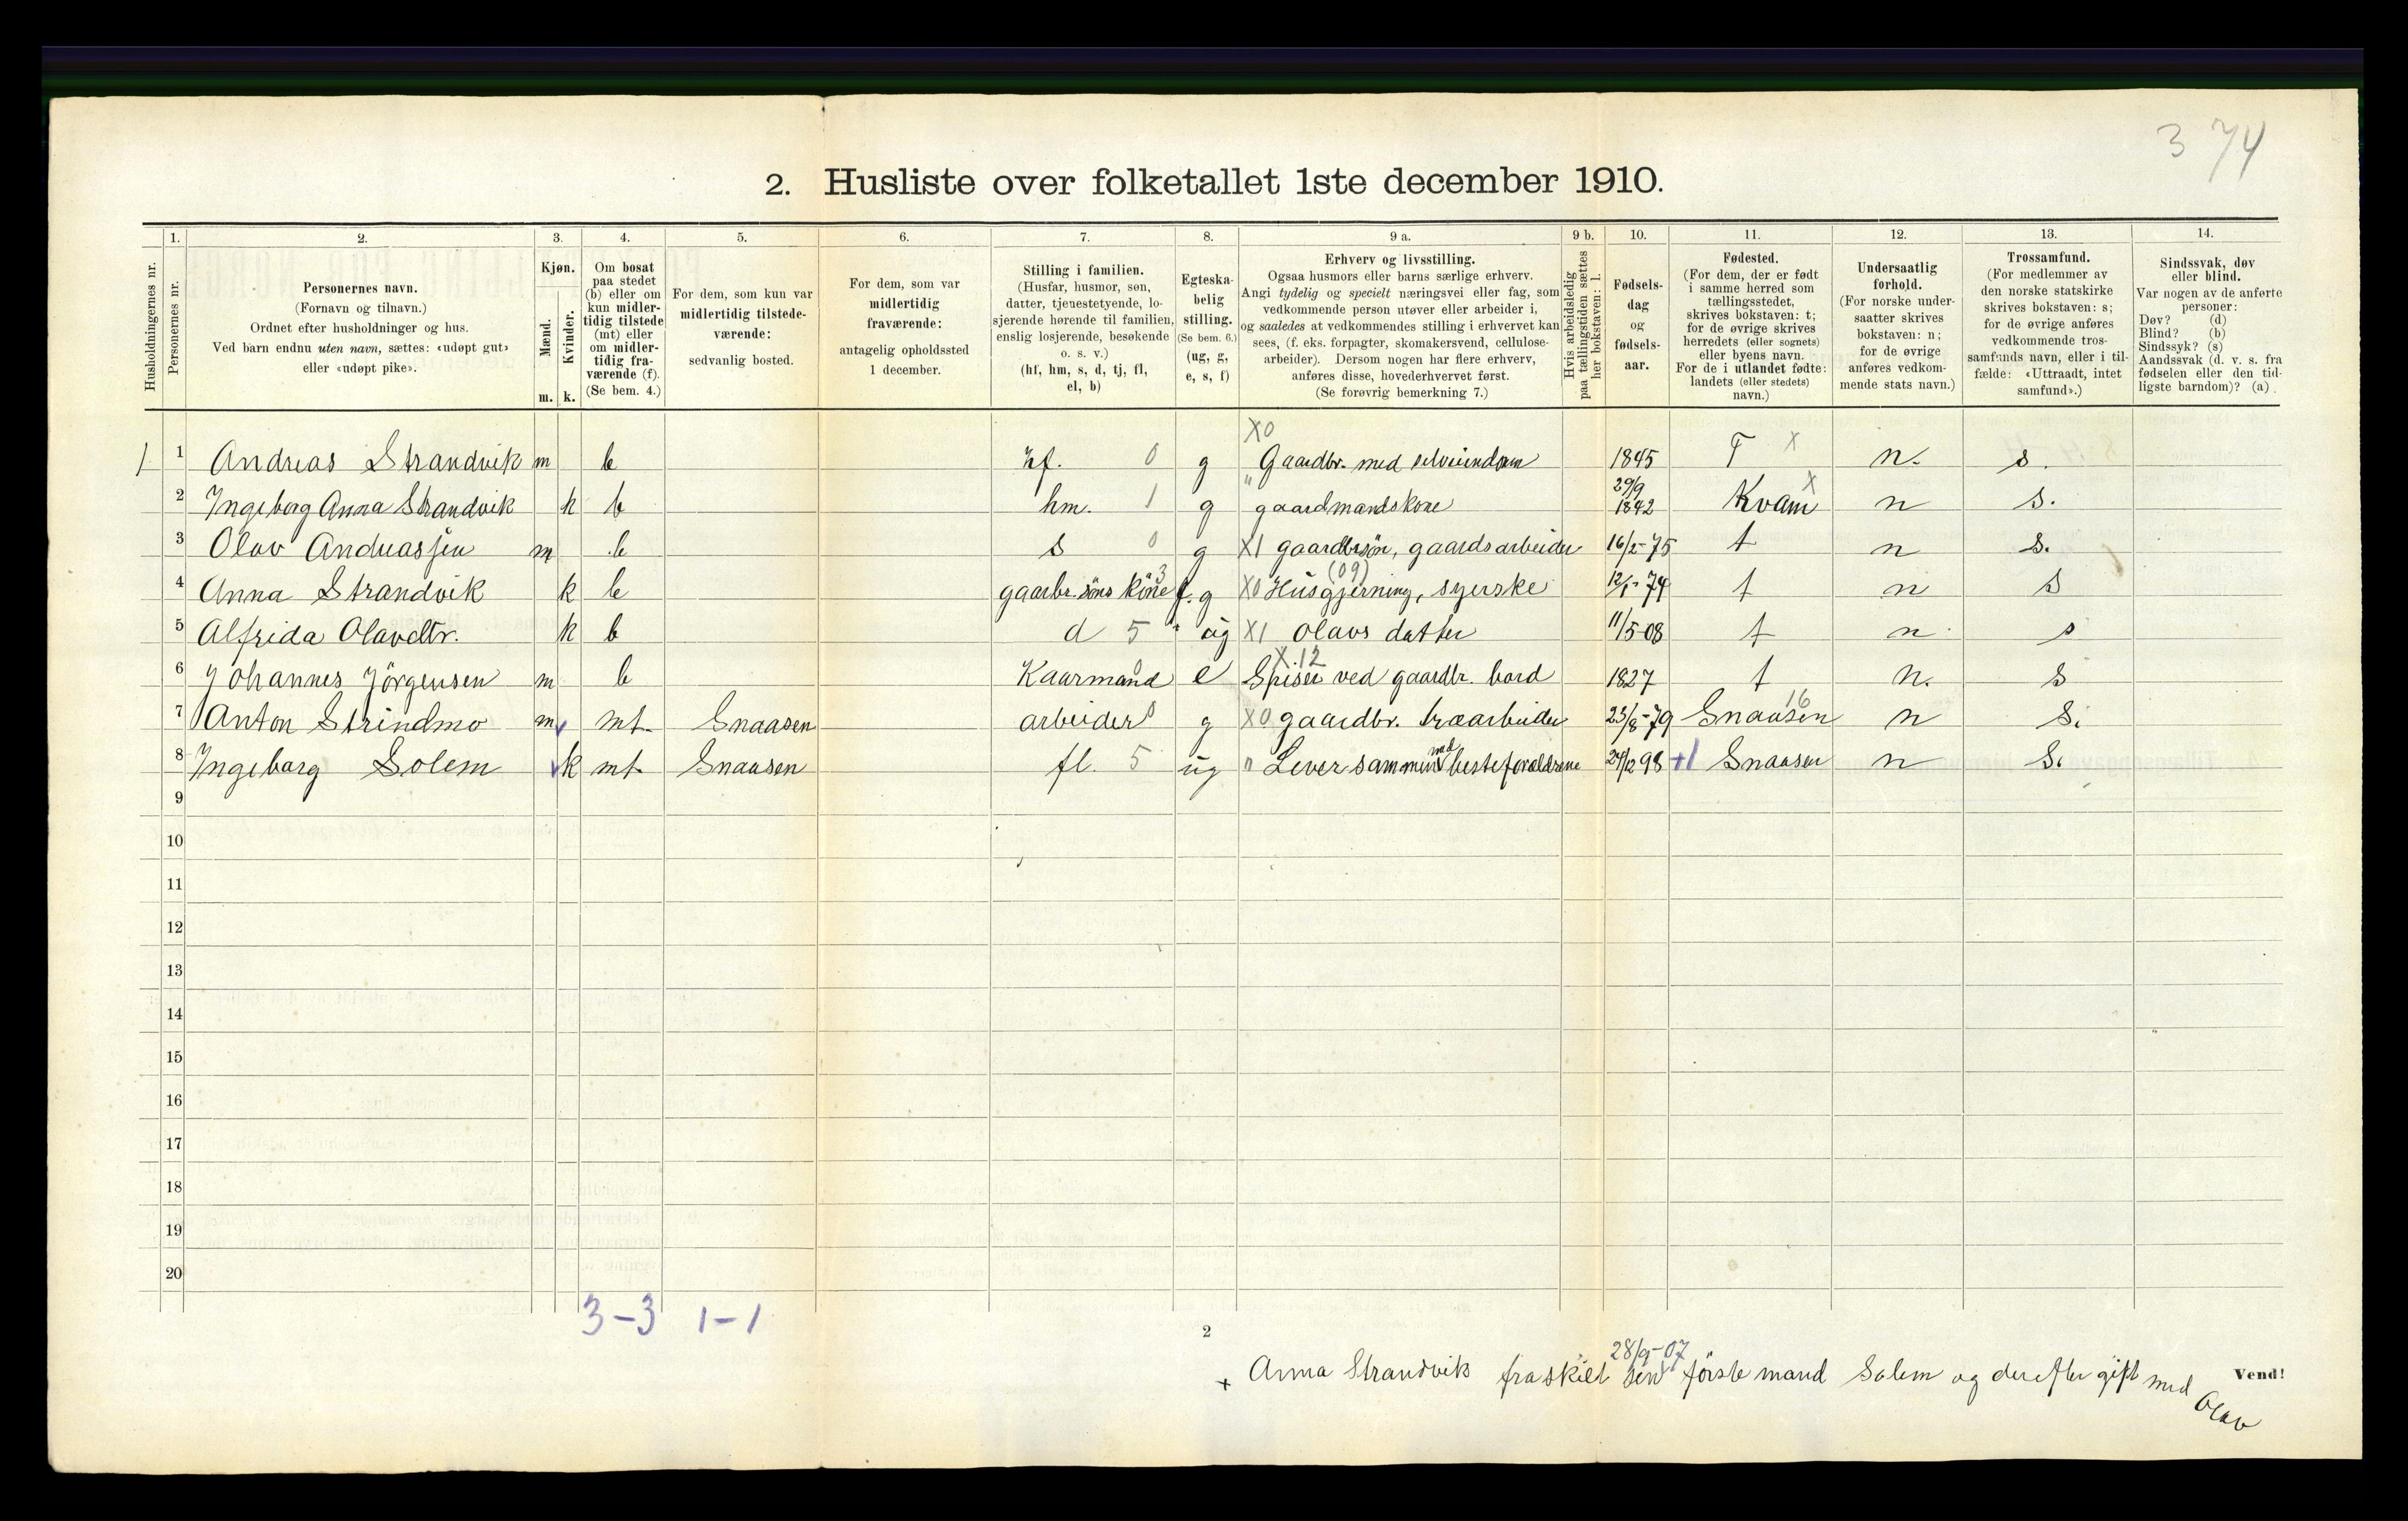 3 74
2. Husliste over folketallet 1ste december 1910.
Husholdningernes nr.
1. Personernes nr.
2. Personernes navn.
(Fornavn og tilnavn.)
Ordnet efter husholdninger og hus.
Ved barn endnu uten navn, sættes: «udøpt gut»
eller «udøpt pike».
3. Kjøn.
Mænd. m.
Kvinder. k.
4. Om bosat
paa stedet
(b) eller om
kun midler-
tidig tilstede
(mt) eller
om midler-
tidig fra-
værende (f).
(Se bem. 4.)
5. For dem, som kun var
midlertidig tilstede-
værende:
sedvanlig bosted.
6. For dem, som var
midlertidig
fraværende:
antagelig opholdssted
1 december.
7. Stilling i familien.
(Husfar, husmor, søn,
datter, tjenestetyende, lo-
sjerende hørende til familien,
enslig losjerende, besøkende
o. s. v.)
(hf, hm, s, d, tj, fl,
el, b)
8. Egteska-
belig
stilling.
(Se bem. 6.)
(ug, g,
e, s, f)
9 a. Erhverv og livsstilling.
Ogsaa husmors eller barns særlige erhverv.
Angi tydelig og specielt næringsvei eller fag, som
vedkommende person utøver eller arbeider i,
og saaledes at vedkommendes stilling i erhvervet kan
sees, (f. eks. forpagter, skomakersvend, cellulose-
arbeider). Dersom nogen har flere erhverv,
anføres disse, hovederhvervet først.
(Se forøvrig bemerkning 7.)
9 b. Hvis arbeidsledig
paa tællingstiden sættes
her bokstaven: l.
10. Fødsels-
dag
og
fødsels-
aar.
11. Fødested.
(For dem, der er født
i samme herred som
tællingsstedet,
skrives bokstaven: t;
for de øvrige skrives
herredets (eller sognets)
eller byens navn.
For de i utlandet fødte:
landets (eller stedets)
navn.)
12. Undersaatlig
forhold.
(For norske under-
saatter skrives
bokstaven: n;
for de øvrige
anføres vedkom-
mende stats navn.)
13. Trossamfund.
(For medlemmer av
den norske statskirke
skrives bokstaven: s;
for de øvrige anføres
vedkommende tros-
samfunds navn, eller i til-
fælde: «Uttraadt, intet
samfund».)
14. Sindssvak, døv
eller blind.
Var nogen av de anførte
personer:
Døv? (d)
Blind? (b)
Sindssyk? (s)
Aandssvak (d. v. s. fra
fødselen eller den tid-
ligste barndom)? (a).
1 1 Andreas Strandvik m b hf. 0 g X0 Gaardbr. med selveiendom 1845 T X n. s.
2 Ingeborg Anna Strandvik k b hm. 1 g " gaardmandskone 29/9 1842 Kvam X n s.
3 Olav Andreassen m b s 0 g X1 gaardbrsön, gaardsarbeider 16/2-75 t n s.
4 Anna Strandvik k b gaarbr. söns kone 3 f. g X0 (09) Husgjerning, syerske 12/1-74 t n s
5 Alfrida Olavdtr. k b d 5 ug X1 Olavs datter 11/5-08 t n s
6 Johannes Jörgensen m b Kaarmand 0 e X.12 Spiser ved gaardbr. bord 1827 t n. s
7 Anton Strindmo m mt. Snaasen arbeider 0 g X0 gaardbr. træarbeider 23/8-79 Snaasen 16 n s.
8 Ingeborg Solem k mt Snaasen fl. 5 ug " Lever sammen med besteforældrene 24/12 98 +1 Snaasen n s.
9
10
11
12
13
14
15
16
17
18
19
20
3-3 1-1
2
28/9-07
+ Anna Strandvik fraskilt sin förste mand Solem og derefter gift med Olav
Vend!